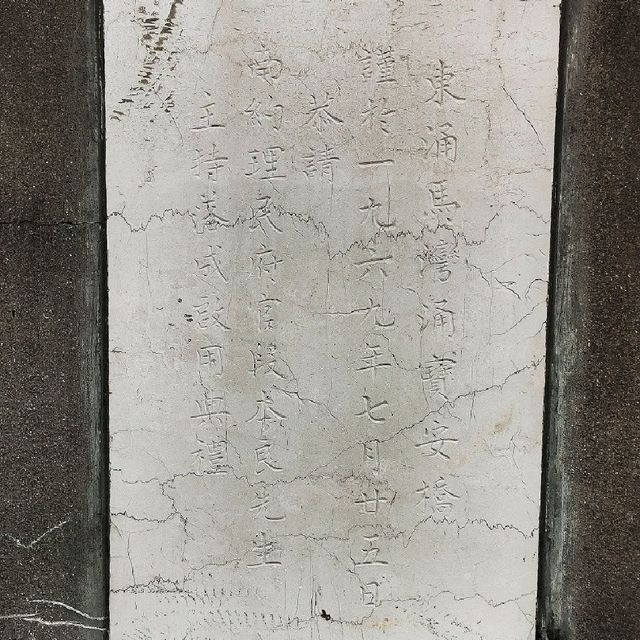 東涌馬灣涌寶安橋
謹於一九六九年七月廿五日
恭請
南約理民府官段本良先生
主持落成啟用典禮